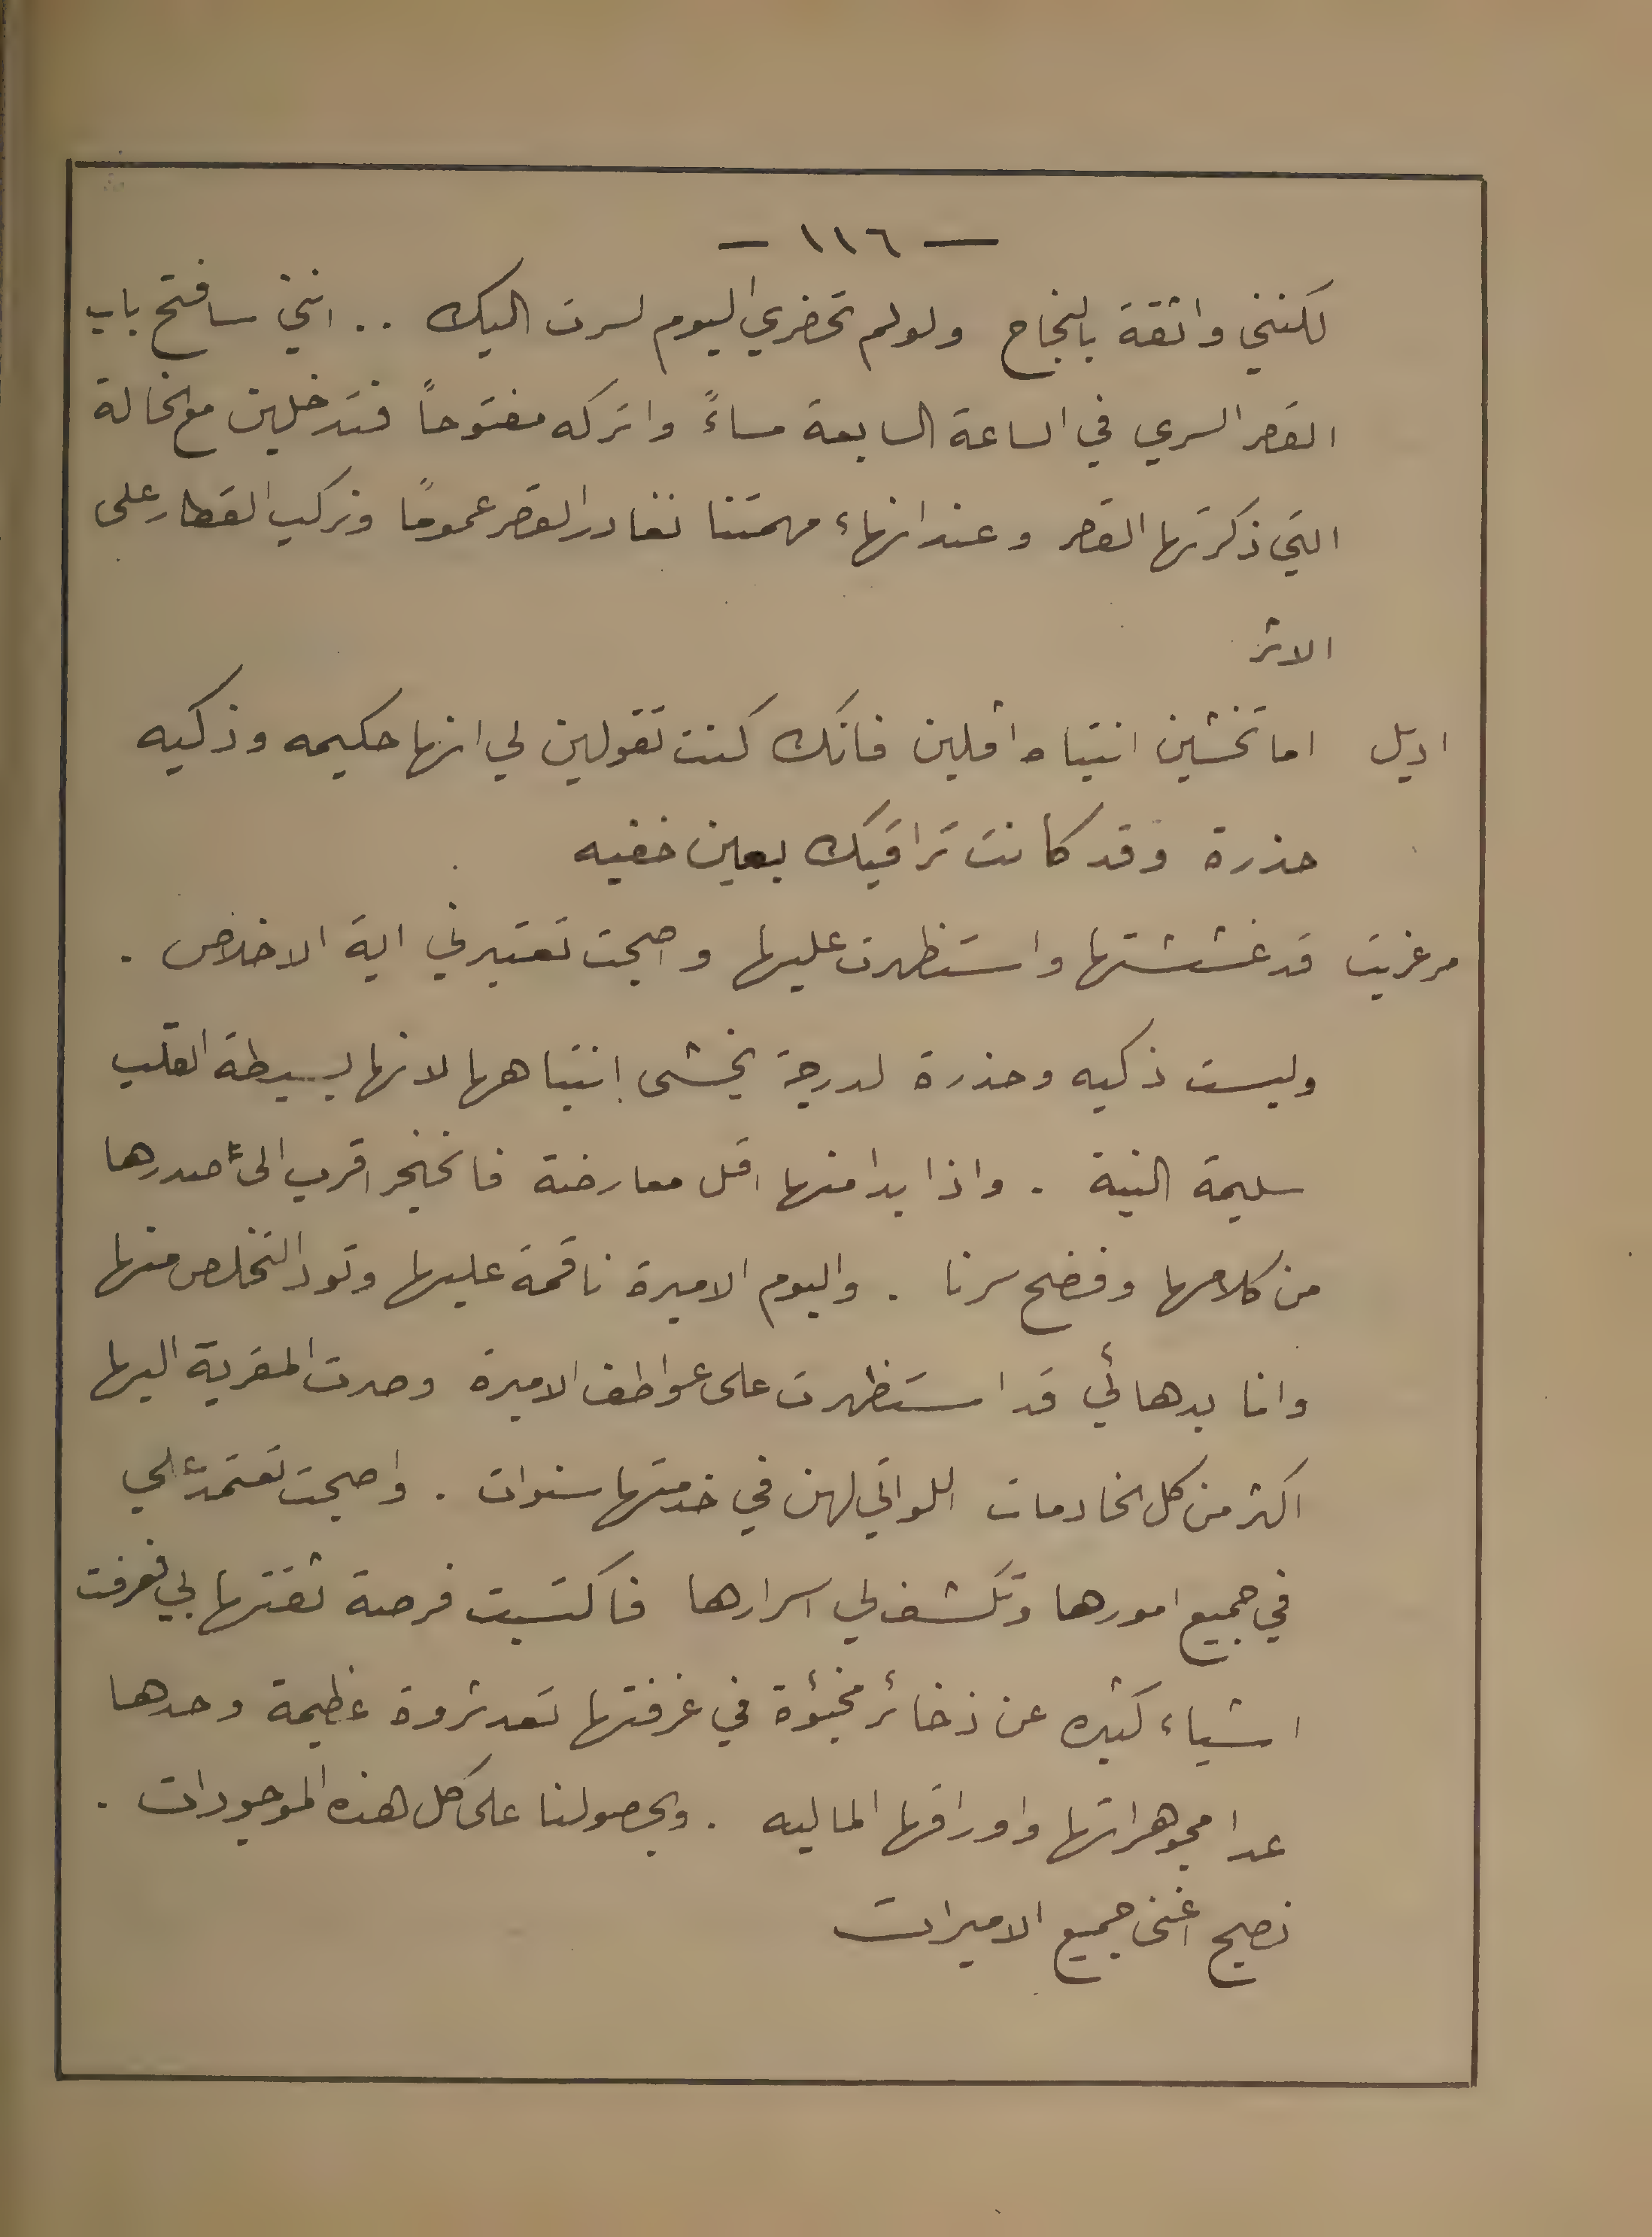 — ١١٦ —
لكنني واثقة بالنجاح ولولم تحضري اليوم لسرت اليك .. انني سافتح باب
القصر السري في الساعة السابعة مساءً واتركه مفتوحاً فتدخلين مع الخالة
التي ذكرتها القصر وعند انهاء مهمتنا نغادر القصر عموماً ونركب القطار على
الاثر
اديل اما تخشين انتباه اقلين فانك كنت تقولين لي انها حكيمه وذكيه
حذرة وقد كانت تراقبك بعين خفيه
مرغريت قد غششتها واستظهرت عليها واصبحت تعتبرني اية الاخلاص .
وليست ذكيه وحذرة لدرجة يخشى انتباهها لانها بسيطة القلب
سليمة النية . واذا بدا منها اقل معارضة فالخنجر اقرب الى صدرها
من كلامها وفضح سرنا . واليوم الاميرة ناقمة عليها وتود التخلص منها
وانا بدهائي قد استظهرت على عواطف الاميرة وصرت المقربة اليها
اكثر من كل الخادمات اللواتي لهن في خدمتها سنوات . واصبحت تعتمد علي
في جميع امورها وتكشف لي اسرارها فاكتسبت فرصة ثقتها بي فعرفت
اشياء كثيره عن ذخائر مخبؤة في غرفتها تعد ثروة عظيمة وحدها
عدا مجوهراتها واوراقها الماليه . وبحصولنا على كل هذه الموجودات .
نصبح اغنى جميع الاميرات